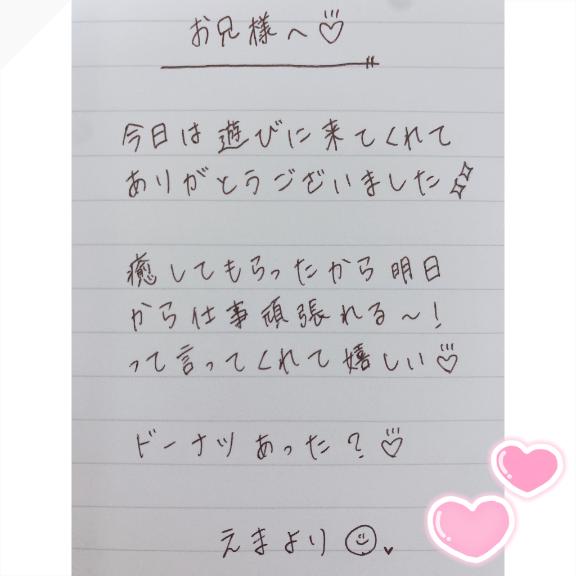 お兄様へ♡
今日は遊びに来てくれて
ありがとうございました
癒してもらったから明日
から仕事頑張れる〜!
って言ってくれて嬉しい♡
ドーナツあった?♡
えまより